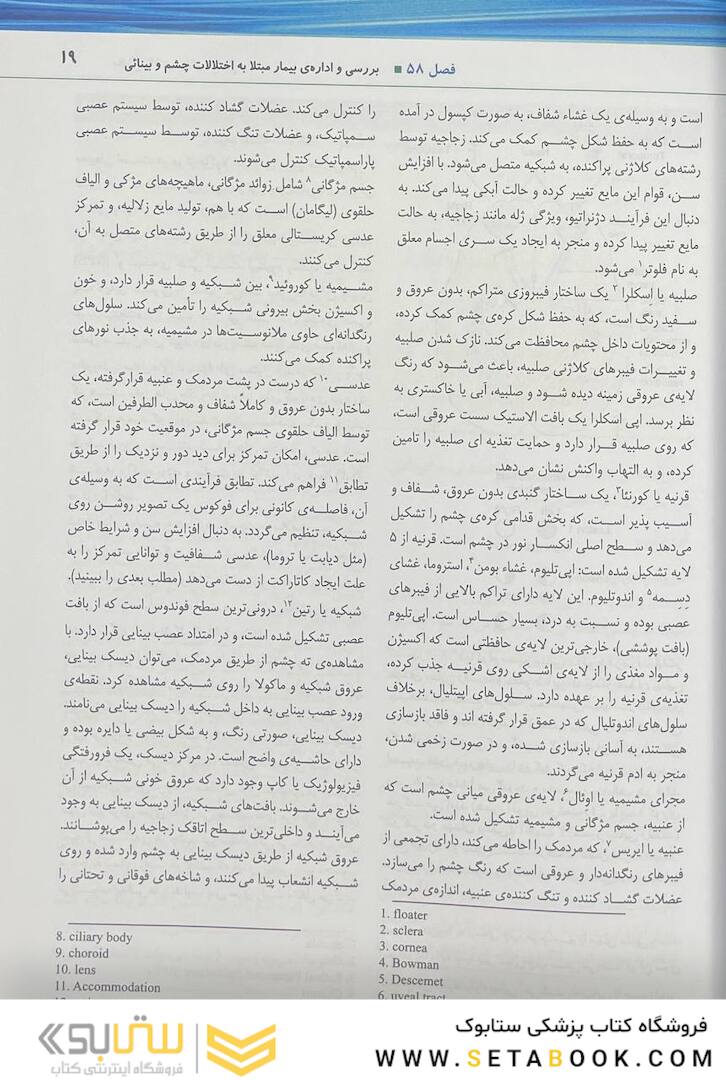 فصل ۵۸ ■ بررسی و اداره‌ی بیمار مبتلا به اختلالات چشم و بینائی
۱۹
است و به وسیله‌ی یک غشاء شفاف، به صورت کپسول در آمده
است که به حفظ شکل چشم کمک می‌کند. زجاجیه توسط
رشته‌های کلاژنی پراکنده، به شبکیه متصل می‌شود. با افزایش
سن، قوام این مایع تغییر کرده و حالت آبکی پیدا می‌کند. به
دنبال این فرآیند دژنراتیو، ویژگی ژله مانند زجاجیه، به حالت
مایع تغییر پیدا کرده و منجر به ایجاد یک سری اجسام معلق
به نام فلوتر۱ می‌شود.
صلبیه یا اِسکلرا ۲ یک ساختار فیبروزی متراکم، بدون عروق و
سفید رنگ است، که به حفظ شکل کره‌ی چشم کمک کرده،
و از محتویات داخل چشم محافظت می‌کند. نازک شدن صلبیه
و تغییرات فیبرهای کلاژنی صلبیه، باعث می‌شود که رنگ
لایه‌ی عروقی زمینه دیده شود و صلبیه، آبی یا خاکستری به
نظر برسد. اپی اسکلرا یک بافت الاستیک سست عروقی است،
که روی صلبیه قرار دارد و حمایت تغذیه ای صلبیه را تامین
کرده، و به التهاب واکنش نشان می‌دهد.
قرنیه یا کورنئا۳، یک ساختار گنبدی بدون عروق، شفاف و
آسیب پذیر است، که بخش قدامی کره‌ی چشم را تشکیل
می‌دهد و سطح اصلی انکسار نور در چشم است. قرنیه از ۵
لایه تشکیل شده است: اپی‌تلیوم، غشاء بومن۴، استروما، غشای
دِسِمه۵ و اندوتلیوم. این لایه دارای تراکم بالایی از فیبرهای
عصبی بوده و نسبت به درد، بسیار حساس است. اپی‌تلیوم
(بافت پوششی)، خارجی‌ترین لایه‌ی حافظتی است که اکسیژن
و مواد مغذی را از لایه‌ی اشکی روی قرنیه جذب کرده،
تغذیه‌ی قرنیه را بر عهده دارد. سلول‌های اپیتلیال، برخلاف
سلول‌های اندوتلیال که در عمق قرار گرفته اند و فاقد بازسازی
هستند، به آسانی بازسازی شده، و در صورت زخمی شدن،
منجر به ادم قرنیه می‌گردند.
مجرای مشیمیه یا اوئال۶، لایه‌ی عروقی میانی چشم است که
از عنبیه، جسم مژگانی و مشیمیه تشکیل شده است.
عنبیه یا ایریس۷، که مردمک را احاطه می‌کند، دارای تجمعی از
فیبرهای رنگدانه‌دار و عروقی است که رنگ چشم را می‌سازد.
عضلات گشاد کننده و تنگ کننده‌ی عنبیه، اندازه‌ی مردمک
1. floater
2. sclera
3. cornea
4. Bowman
5. Descemet
6. uveal tract
را کنترل می‌کند. عضلات گشاد کننده، توسط سیستم عصبی
سمپاتیک، و عضلات تنگ کننده، توسط سیستم عصبی
پاراسمپاتیک کنترل می‌شوند.
جسم مژگانی۸ شامل زوائد مژگانی، ماهیچه‌های مژکی و الیاف
حلقوی (لیگامان) است که با هم، تولید مایع زلالیه، و تمرکز
عدسی کریستالی معلق را از طریق رشته‌های متصل به آن،
کنترل می‌کنند.
مشیمیه یا کوروئید۹، بین شبکیه و صلبیه قرار دارد، و خون
و اکسیژن بخش بیرونی شبکیه را تأمین می‌کند. سلول‌های
رنگدانه‌ای حاوی ملانوسیت‌ها در مشیمیه، به جذب نورهای
پراکنده کمک می‌کنند.
عدسی۱۰ که درست در پشت مردمک و عنبیه قرارگرفته، یک
ساختار بدون عروق و کاملاً شفاف و محدب الطرفین است، که
توسط الیاف حلقوی جسم مژگانی، در موقعیت خود قرار گرفته
است. عدسی، امکان تمرکز برای دید دور و نزدیک را از طریق
تطابق۱۱ فراهم می‌کند. تطابق فرآیندی است که به وسیله‌ی
آن، فاصله‌ی کانونی برای فوکوس یک تصویر روشن روی
شبکیه، تنظیم می‌گردد. به دنبال افزایش سن و شرایط خاص
(مثل دیابت یا تروما)، عدسی شفافیت و توانایی تمرکز را به
علت ایجاد کاتاراکت از دست می‌دهد (مطلب بعدی را ببینید).
شبکیه یا رتین۱۲، درونی‌ترین سطح فوندوس است که از بافت
عصبی تشکیل شده است، و در امتداد عصب بینایی قرار دارد. با
مشاهده‌ی ته چشم از طریق مردمک، می‌توان دیسک بینایی،
عروق شبکیه و ماکولا را روی شبکیه مشاهده کرد. نقطه‌ی
ورود عصب بینایی به داخل شبکیه را دیسک بینایی می‌نامند.
دیسک بینایی، صورتی رنگ، و به شکل بیضی یا دایره بوده و
دارای حاشیه‌ی واضح است. در مرکز دیسک، یک فرورفتگی
فیزیولوژیک یا کاپ وجود دارد که عروق خونی شبکیه از آن
خارج می‌شوند. بافت‌های شبکیه، از دیسک بینایی به وجود
می‌آیند و داخلی‌ترین سطح اتاقک زجاجیه را می‌پوشانند.
عروق شبکیه از طریق دیسک بینایی به چشم وارد شده و روی
شبکیه انشعاب پیدا می‌کنند، و شاخه‌های فوقانی و تحتانی را
8. ciliary body
9. choroid
10. lens
11. Accommodation
فروشگاه کتاب پزشکی ستابوک
WWW.SETABOOK.COM
ستابوک
فروشگاه اینترنتی کتاب